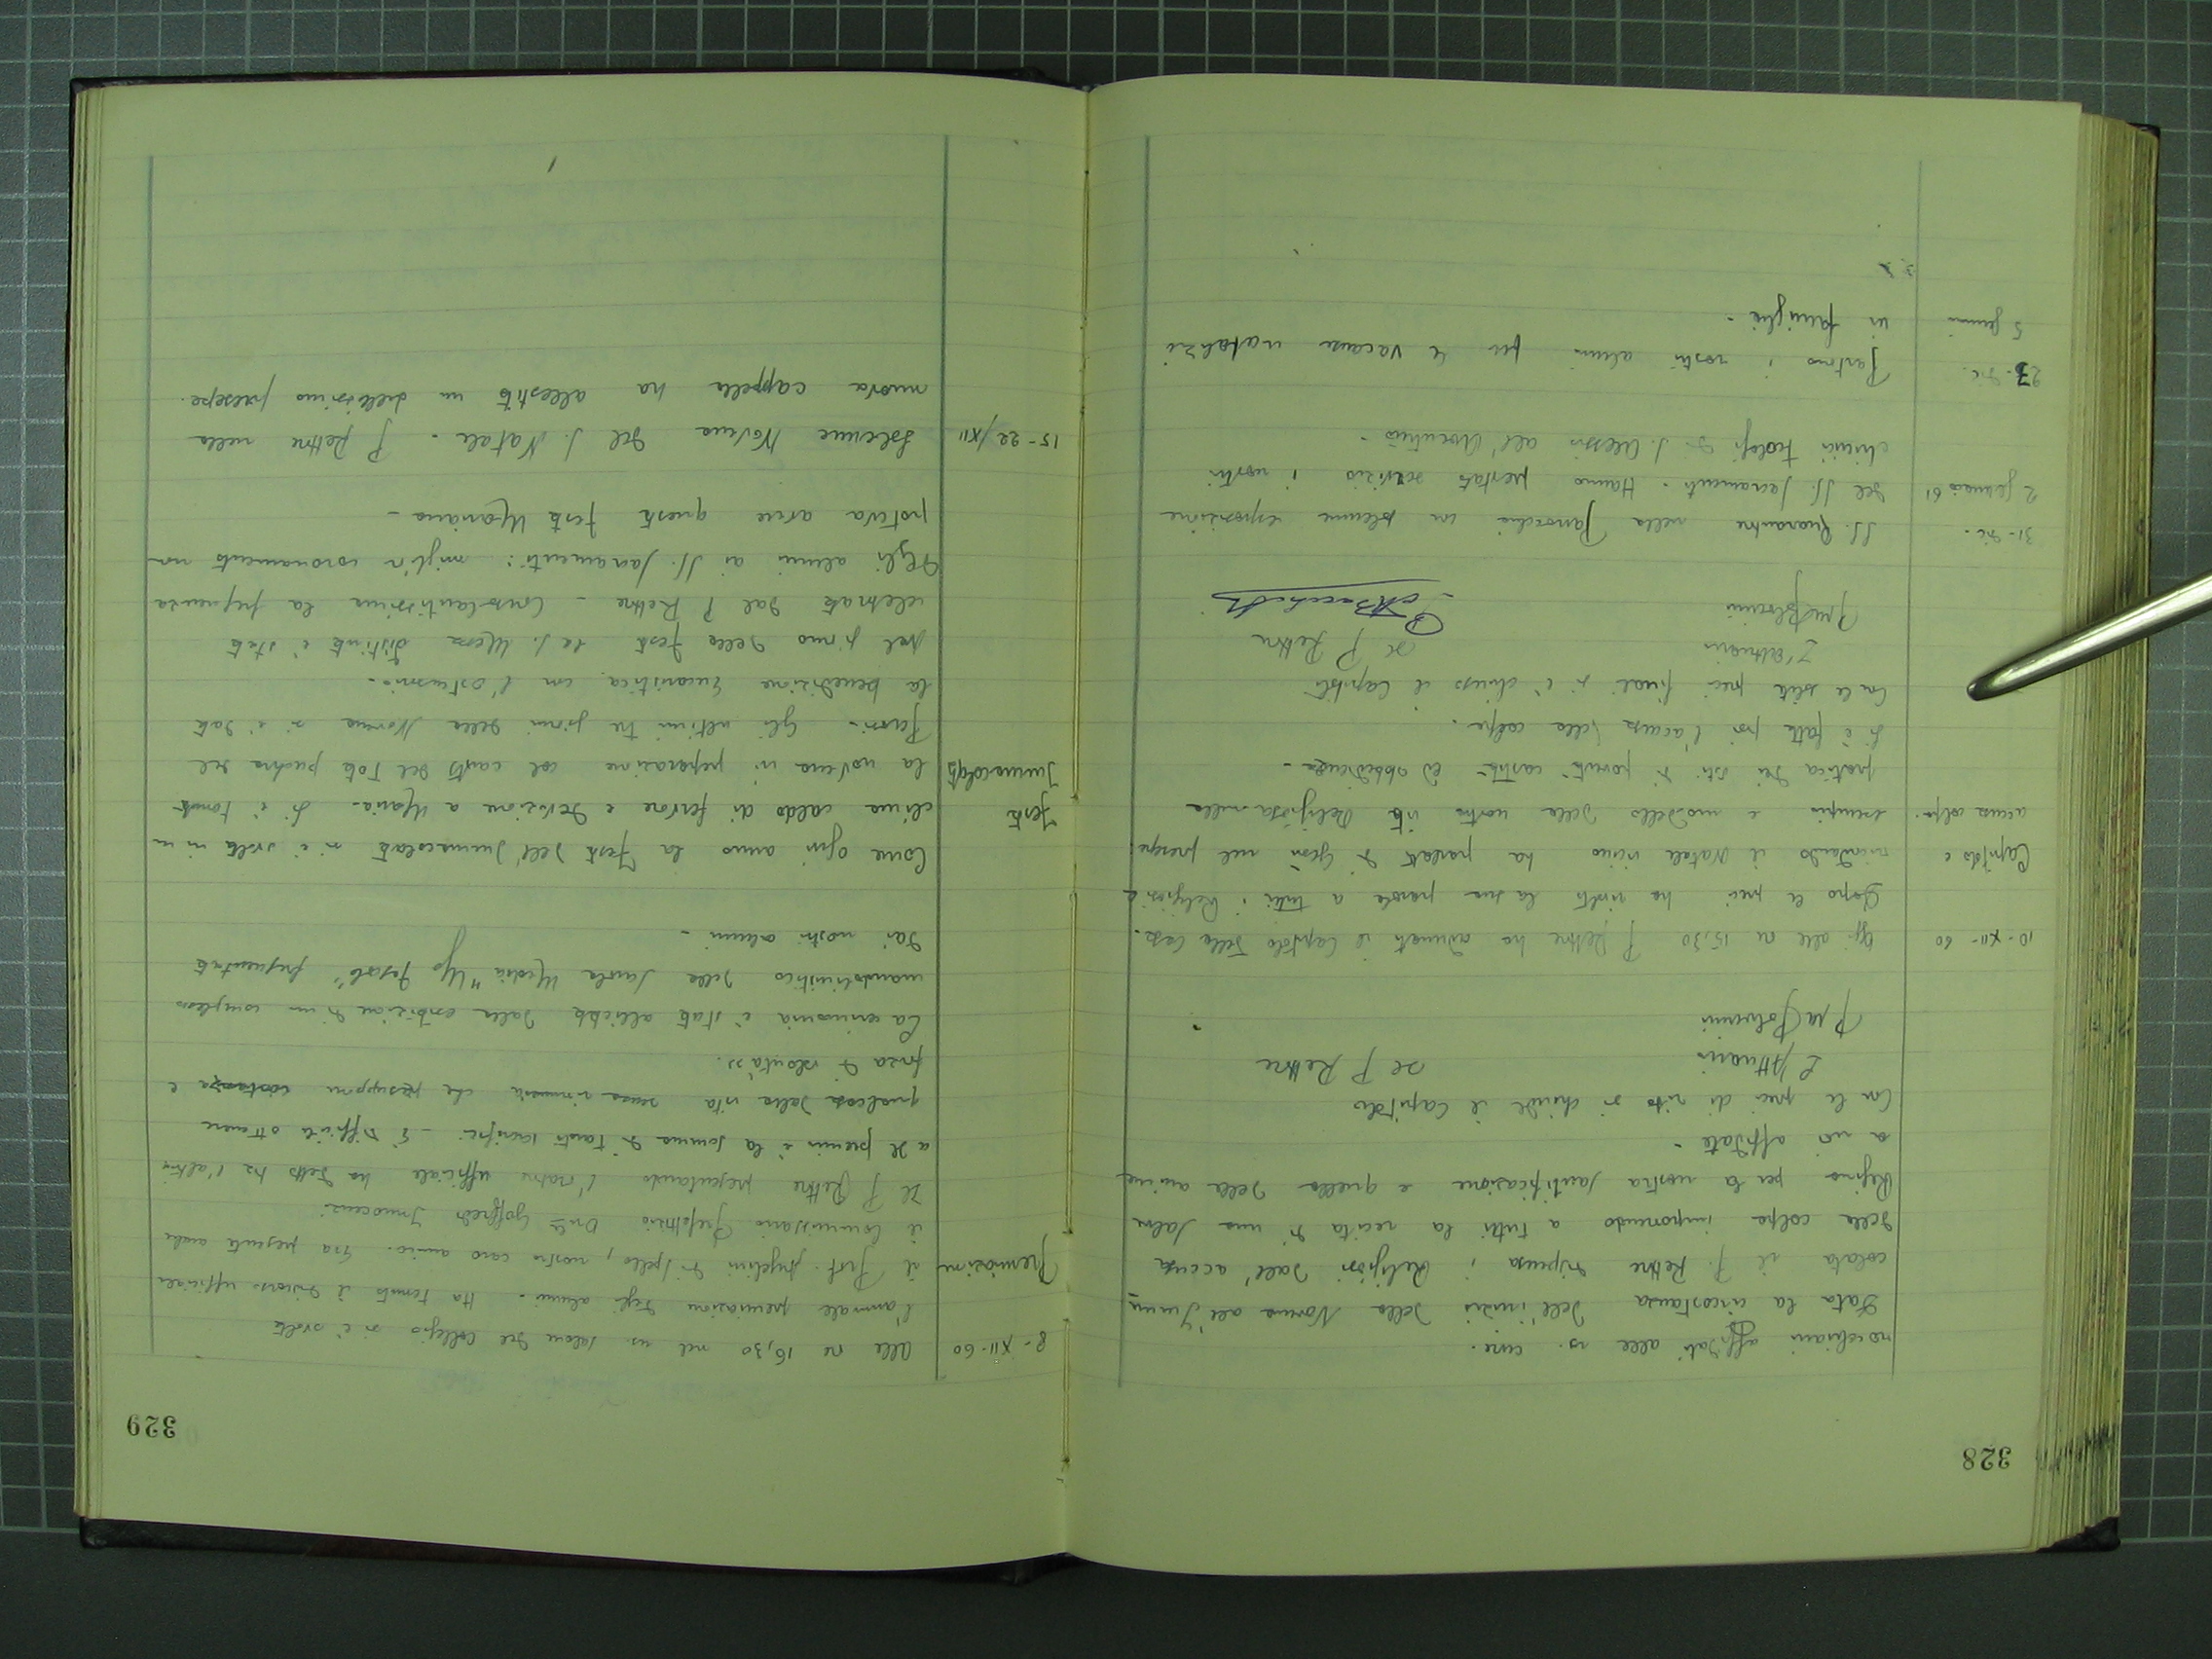 328
rocchiani affidati alle ns. cure.
Data la circostanza dell'inizio della Novena all'Imma
colata il P. Rettore dispensa i Religiosi dall'accusa
delle colpe imponendo a tutti la recita di una Salve
Regina per la nostra santificazione e quella delle anime
a noi affidate -
Con le preci di rito si chiude il Capitolo
L'Attuario Il P. Rettore
10-XII-60 Oggi alle ore 15,30 P. Rettore ha adunato il Capitolo della Casa.
Dopo le preci ha rivolto la sua parola a tutti i Religiosi e
Capitolo e ricordando il Natale vicino ha parlato di Gesù nel presepe
accusa colpe. esempio e modello della nostra vita Religiosa nella
pratica dei voti di povertà castità ed obbedienza -
Si è fatta poi l'accusa delle colpe.
Con le solite preci finali si è chiuso il Capitolo
L'Attuario Il P. Rettore
31-dic. SS. Quarantore nella Parrocchia con solenne esposizione
2 gennaio 61 del SS. Sacramento. Hanno prestato servizio i nostri
chierici teologi di S. Alessio all'Aventino -
23-dic. Partono i nostri alunni per le vacanze natalizie
5 genn. in famiglia -
329
8-XII-60 Alle ore 16,30 nel ns. salone del Collegio si è svolta
l'annuale premiazione degli alunni. Ha tenuto il discorso ufficiale
Premiazione il Prof. Angelini di Spello, nostro caro amico. Era presente anche
il Commissario Prefettizio Goffredo Innocenzi
Il P. Rettore presentando l'oratore ufficiale ha detto tra l'altro
"Il premio è la somma di tanti sacrifici - È difficile ottenere
qualcosa dalla vita senza rinuncia che presuppone costanza e
forza di volontà".
La cerimonia è stata allietata dalla esibizione di un complesso
mandolinistico della Scuola Media "Ugo Foscolo" frequentata
dai nostri alunni -
Come ogni anno la festa dell'Immacolata si è svolta in un
Festa clima caldo di fervore e devozione a Maria. Si è tenuta
Immacolata la novena in preparazione col canto del Tota pulchra del
Perosi. Gli ultimi tre giorni della Novena si è data
la benedizione Eucaristica con l'ostensorio -
Nel giorno della festa la S. Messa distinta è stata
celebrata dal P. Rettore - Consolantissima la frequenza
degli alunni ai SS. Sacramenti: miglior coronamento non
poteva avere questa festa Mariana -
15-22/XII Solenne Novena del S. Natale. P. Rettore nella
nuova cappella ha allestito un bellissimo presepe.